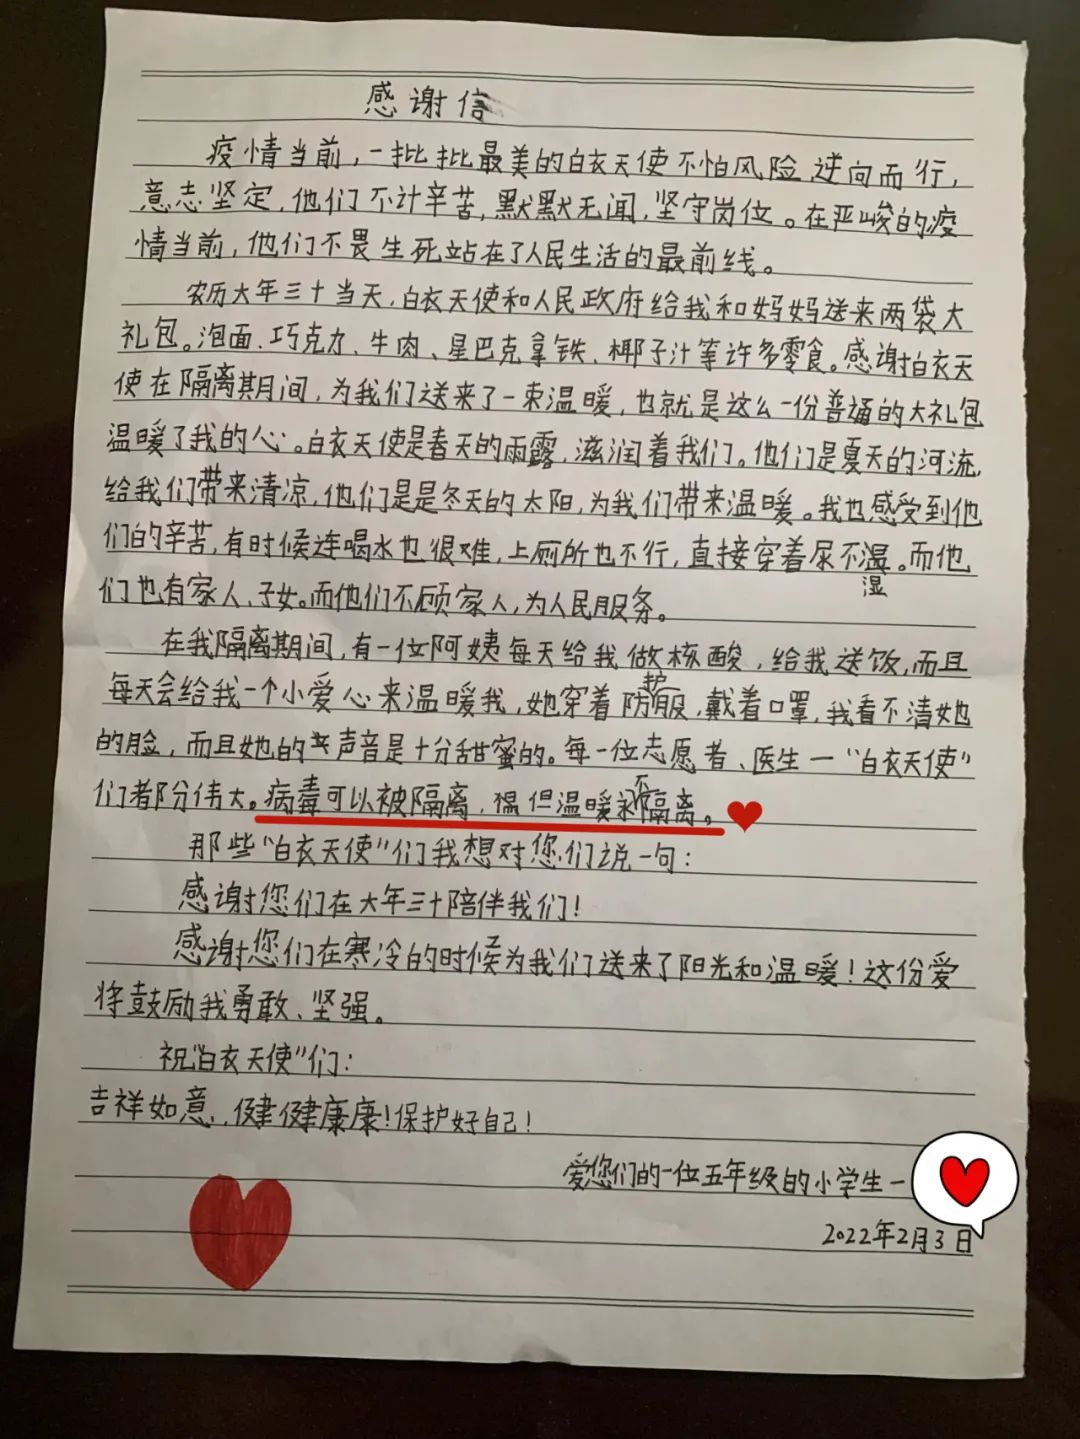 感谢信
疫情当前，一批批最美的白衣天使不怕风险，逆向而行，
意志坚定，他们不计辛苦，默默无闻，坚守岗位。在严峻的疫
情当前，他们不畏生死站在了人民生活的最前线。
农历大年三十当天，白衣天使和人民政府给我和妈妈送来两袋大
礼包。泡面、巧克力、牛肉、星巴克拿铁、椰子汁等许多零食。感谢白衣天
使在隔离期间，为我们送来了一束温暖，也就是这么一份普通的大礼包
温暖了我的心。白衣天使是春天的雨露，滋润着我们。他们是夏天的河流，
给我们带来清凉，他们是是冬天的太阳，为我们带来温暖。我也感受到他
们的辛苦，有时候连喝水也很难，上厕所也不行，直接穿着尿不湿。而他
湿
们也有家人、子女。而他们不顾家人，为人民服务。
在我隔离期间，有一位阿姨每天给我做核酸，给我送饭，而且
每天会给我一个小爱心来温暖我，她穿着防护服，戴着口罩，我看不清她
的脸，而且她的声音是十分甜蜜的。每一位志愿者、医生一“白衣天使”
们都分伟大。病毒可以被隔离，但温暖永不隔离。
那些“白衣天使”们我想对您们说一句：
感谢您们在大年三十陪伴我们！
感谢您们在寒冷的时候为我们送来了阳光和温暖！这份爱
将鼓励我勇敢、坚强。
祝“白衣天使”们：
吉祥如意，健健康康！保护好自己！
爱您们的一位五年级的小学生一
2022年2月3日